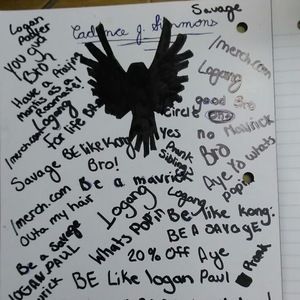 Savage
Cadence J. Simmons
Logan
You Just
Bruh
Have as
many as Praying
/merch.com
Logang
for life
Savage
BE like Kong
Bro!
/merch.com
outa my hair
Be a Savage
LOGAN PAUL
Be a mavrick
Logang
Whats Poppin
20% off
BE Like logan Paul
/merch.com
Logang
good Bro
circle one
Yes no Mavrick
Bro
Prank
Siblings
Logang
Aye Yo whats
poppin
BE like Kong:
BE A SAVAGE
Aye
Prank